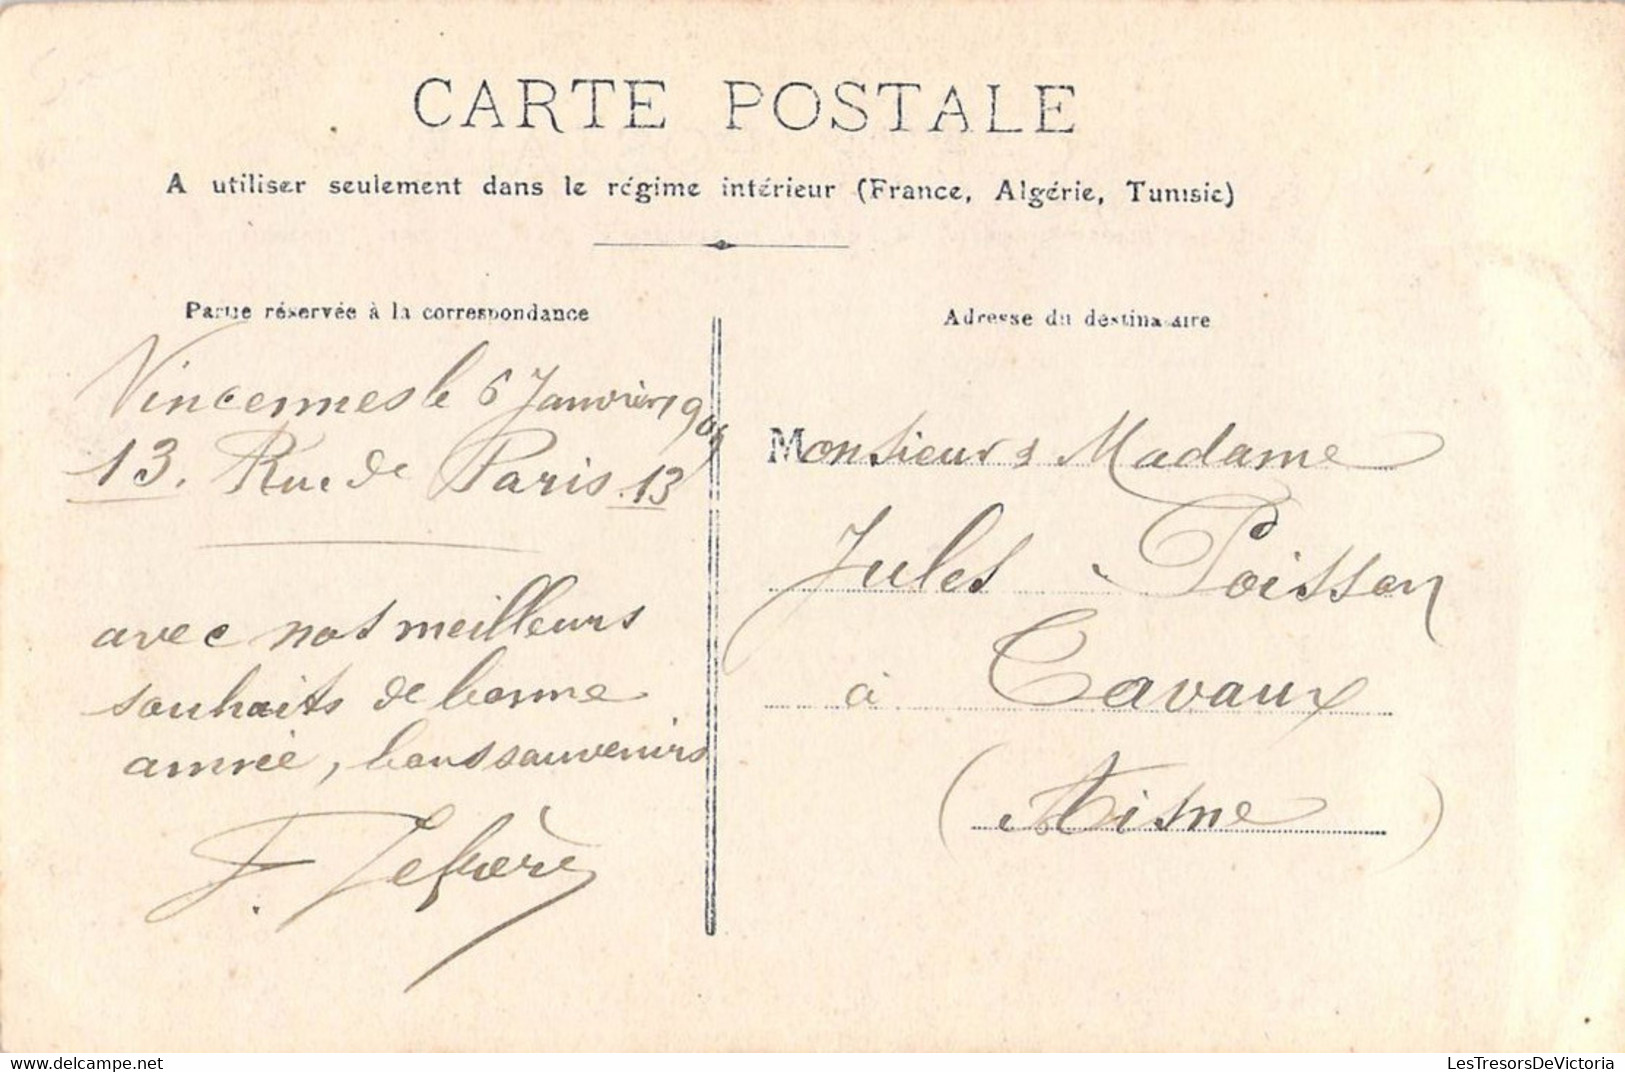 CARTE POSTALE
A utiliser seulement dans le régime intérieur (France, Algérie, Tunisie)
Partie réservée à la correspondance
Vincennes le 6 Janvier
13. Rue de Paris. 13
avec nos meilleurs
souhaits de bonne
année, bons souvenirs
F. Lefèvre
Adresse du destinataire
Monsieur & Madame
Jules Poisson
à Cavaux
(Aisne)
LesTresorsDeVictoria